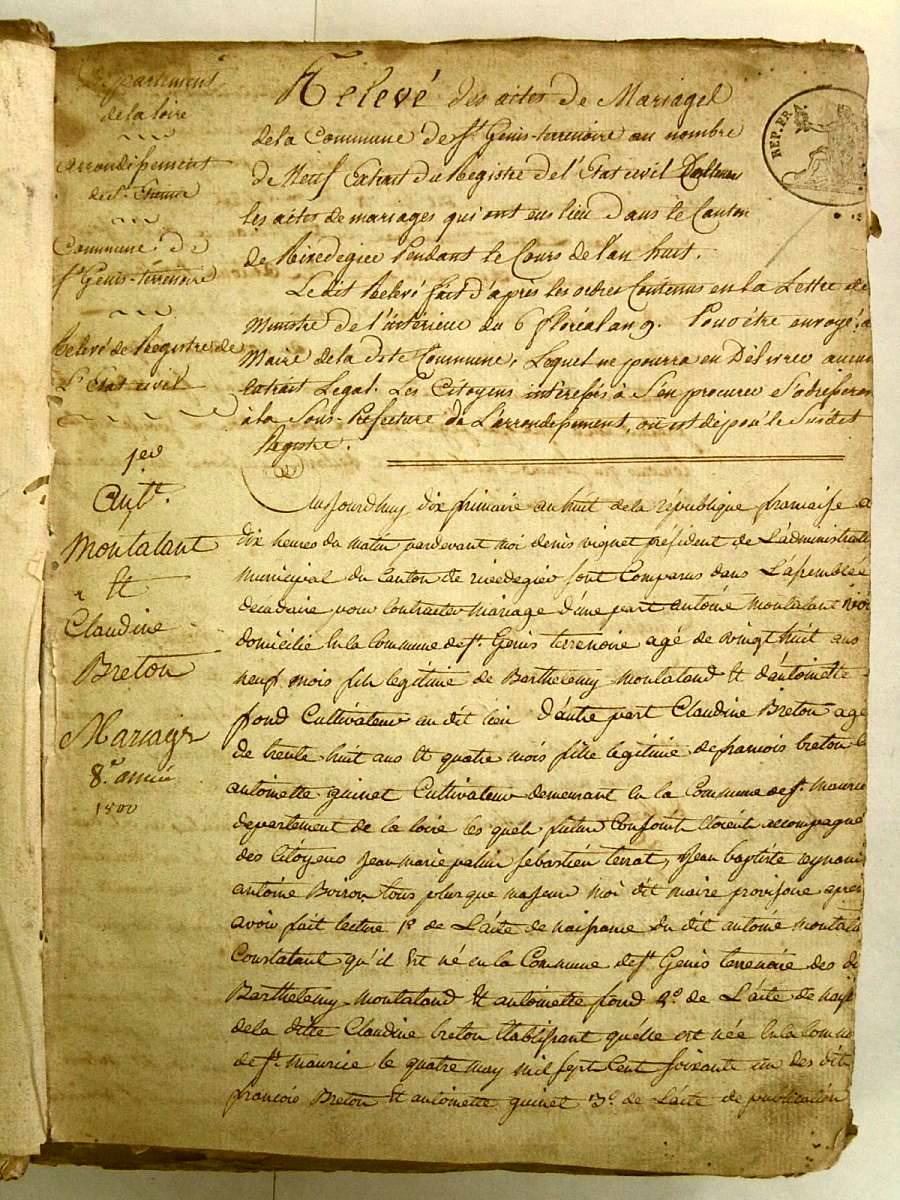 Departement
de la loire
arrondissement
de St. Etienne
Commune de
St Genis-terrenoire
Relevé de Registre de
L'Etat civil
1er
Ant.
Montalant
Et
Claudine
Breton
Mariage
8e année
1800
Relevé des actes de Mariages
de la Commune de St Genis-terrenoire au nombre
de Neuf Extrait du Registre de l'Etat civil
les actes de mariages qui ont eus lieu dans le Canton
de Rivedegiee Pendant le Cours de l'an huit.
Le dit Relevé fait d'aprés les ordres Contenus en la Lettre de
Ministre de l'intérieur du 6 floréal an 9. Pour être envoyé a
Maire de la dite Commune, Lequel ne pourra en Délivrer aucun
Extrait Legal. Les Citoyens intéréssés à S'en procurer S'adresseron
à la Sous-Préfecture de L'arrondissement, où est déposé le Susdit
Registre.
REP. FRA.
Aujourdhuy dix frimaire an huit de la république francaise a
dix heures du matin pardevant moi denis vignet président de L'administrati
municipal du Canton de rivedegier sont Comparus dans L'assemblée
decadaire pour contracter mariage d'une part antoine montalant
domicilié En la Commune de St. Genis terrenoire agé de vingt huit ans
neuf mois fils legitime de Barthelemy montaland Et d'antoinette
fond Cultivateur au dit lieu d'autre part Claudine Breton agé
de trente huit ans Et quatre mois fille légitime de francois breton E
antoinette quinet Cultivateur demeurant En la Commune de St. maurice
departement de la loire les quels futurs Conjoints étoient accompagné
des Citoyens Jean marie palin sebastien terrat, Jean baptiste reynau
antoine Boiron tous plus que majeur moi dit maire provisoire apres
avoir fait lecture 1º de L'acte de naissance du dit antoine montala
Constatant qu'il Est né en la Commune de St. Genis terrenoire des di
Barthelemy montaland Et antoinette fond 2º de L'acte de nays
de la ditte Claudine breton Etablissant qu'elle est née En la Commu
de St. maurice le quatre may mil sept Cent soixante un des dits
francois Breton Et antoinette quinet 3º de L'acte de publication